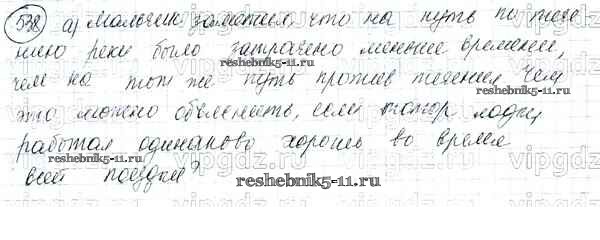 538 а) Мальчик заметил, что на путь по тече
нию реки было затрачено меньше времени,
чем на тот же путь против течения. Чем
это можно объяснить, если мотор лодки
работал одинаково хорошо во время
всей поездки?
reshebnik5-11.ru
reshebnik5-11.ru
reshebnik5-11.ru
vipgdz.ru
vipgdz.ru
vipgdz.ru